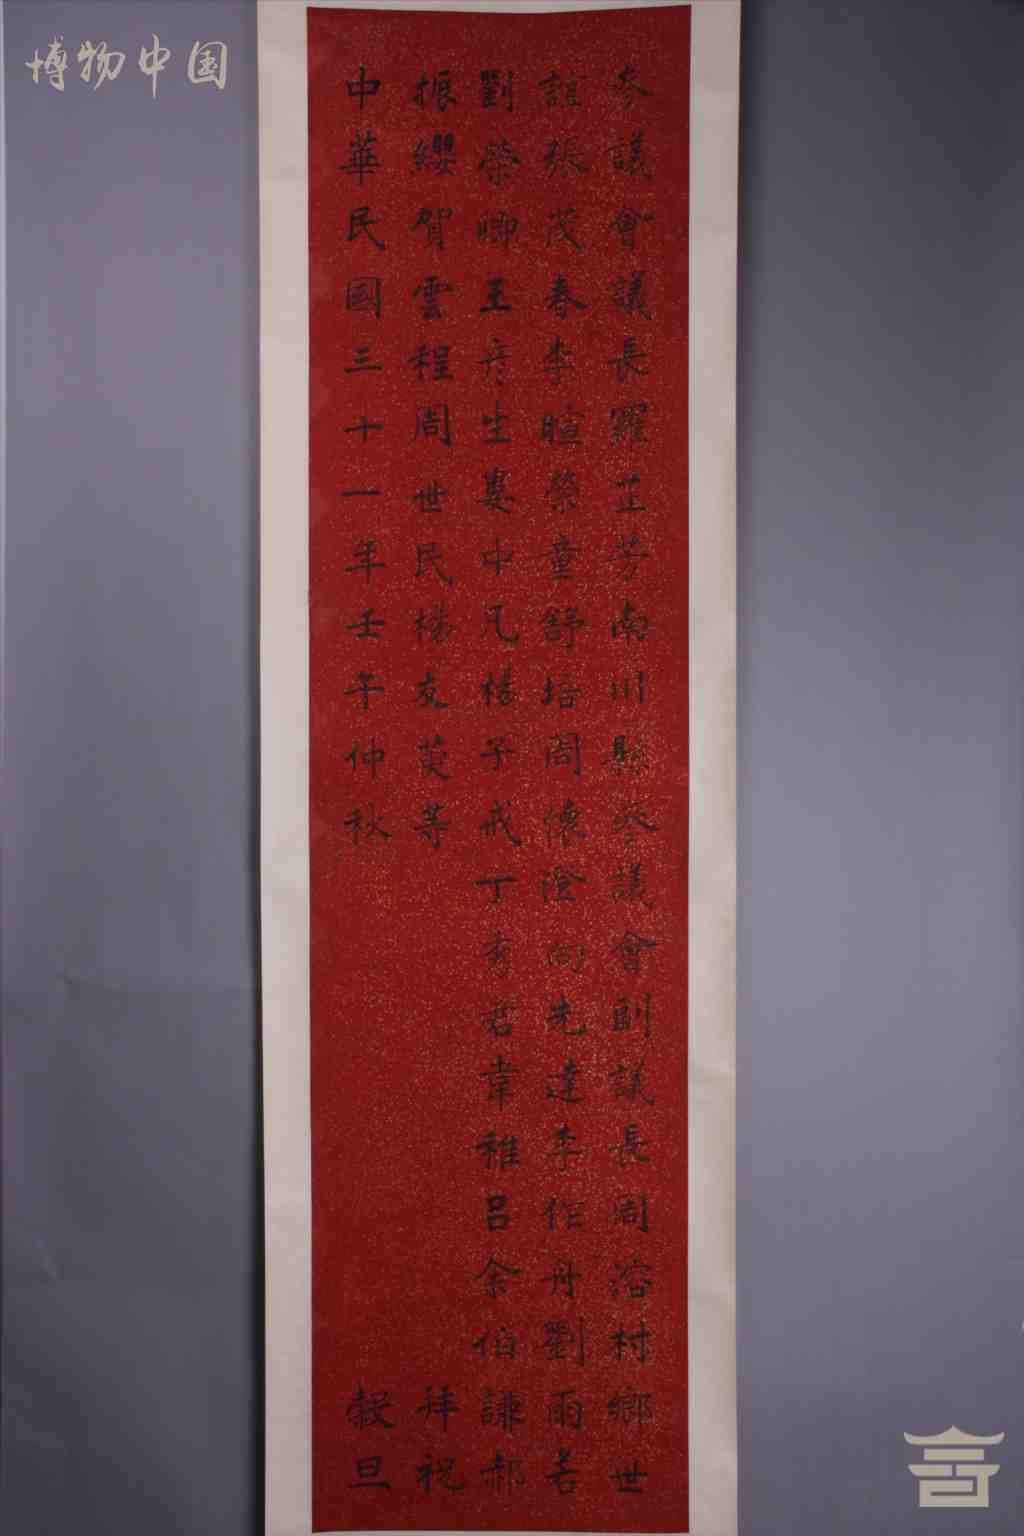 博物中国
參議會議長羅芷芳南川縣參議會副議長周溶村鄉世
誼張茂春李暄榮童舒培周懷澄向先達李作舟劉雨若
劉榮卿王彥生婁中凡楊子戒丁秀君韋稚呂余伯謙郝
振纓賀雲程周世民楊友萸等 拜祝
中華民國三十一年壬午仲秋 穀旦